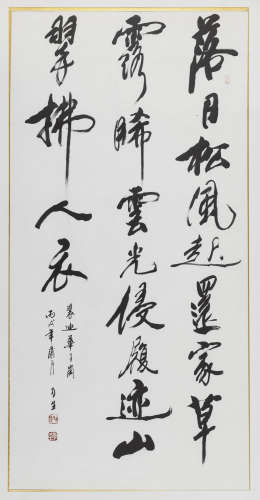 落月松風起還家草
露晞雲光侵履迹山
翠拂人衣
裴迪華子崗
丙戌年